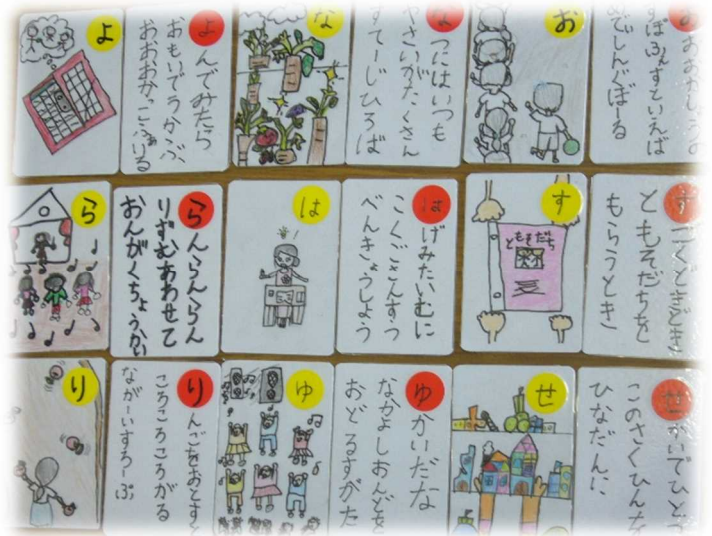 よ
よんでみたら
おもいでうかぶ
おおおかっこふぁいる
な
なつにはいつも
やさいがたくさん
すてーじひろば
お
おおおかしょうの
すぽふぇすといえば
めでしんぐぼーる
ら
らんらんらんらん
りずむあわせて
おんがくちょうかい
は
はげみたいむに
こくごさんすう
べんきょうしよう
す
ともそだち
すごくどきどき
ともそだちを
もらうとき
り
りんごをおとすと
ころころころがる
ながーいすろーぷ
ゆ
ゆかいだな
なかよしおんどを
おどるすがた
せ
せかいでひとつ
このさくひん
ひなだんに